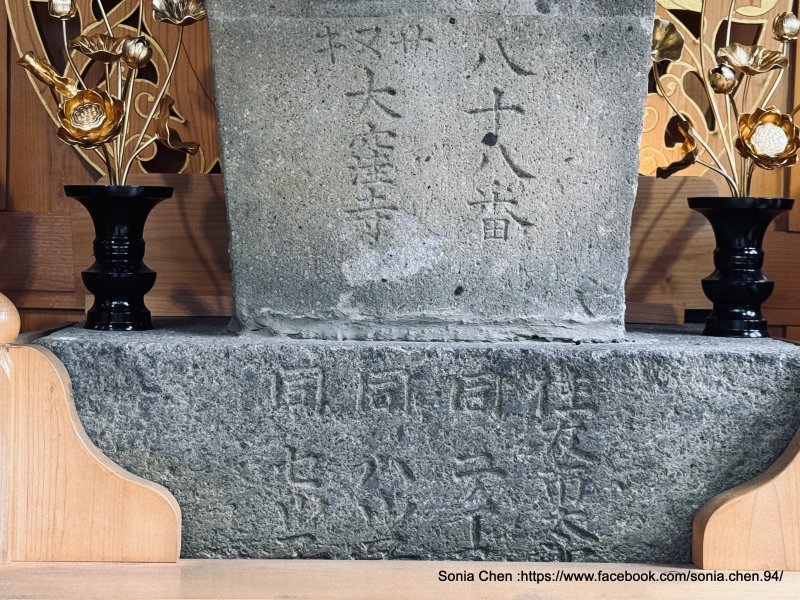 八十八番
サヌキ
大窪寺
住友市太
同
同 ハツ
同
Sonia Chen :https://www.facebook.com/sonia.chen.94/